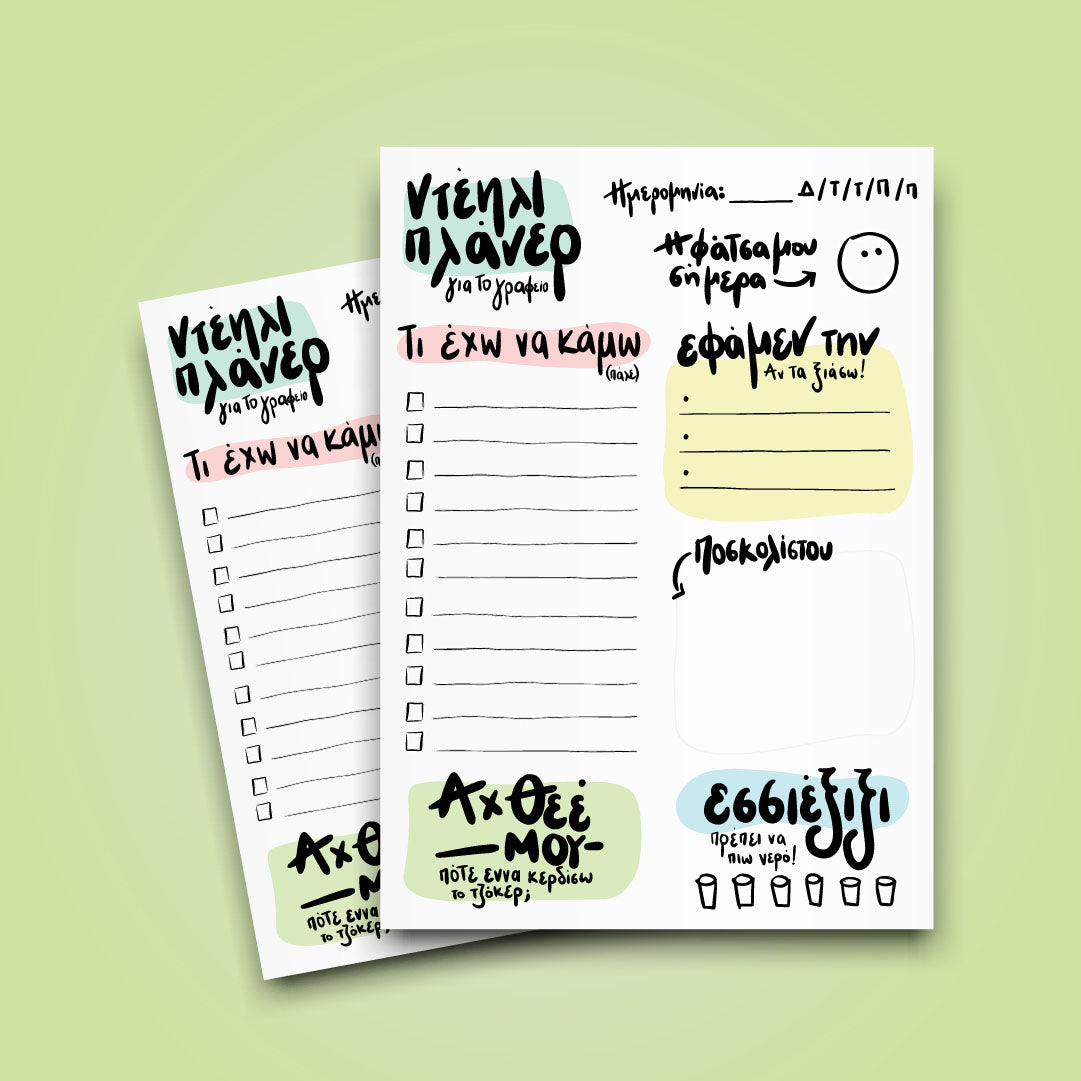 Ντέηλι
πλάνερ
για το γραφείο
Ημερομηνία: ______ Δ/Τ/Τ/Π/Π
Η φάτσα μου
σήμερα
Τι έχω να κάμω
(πάλε)
εφάμεν την
Αν τα ξιάσω!
Ποσκολίστου
Αχ Θεέ
μου
πότε εννα κερδίσω
το τζόκερ;
εσσιέξιξι
πρέπει να
πιω νερό!
Ντέηλι
πλάνερ
για το γραφείο
Ημε
Τι έχω να κάμ
Αχ Θ
πότε εννα
το τζόκερ;